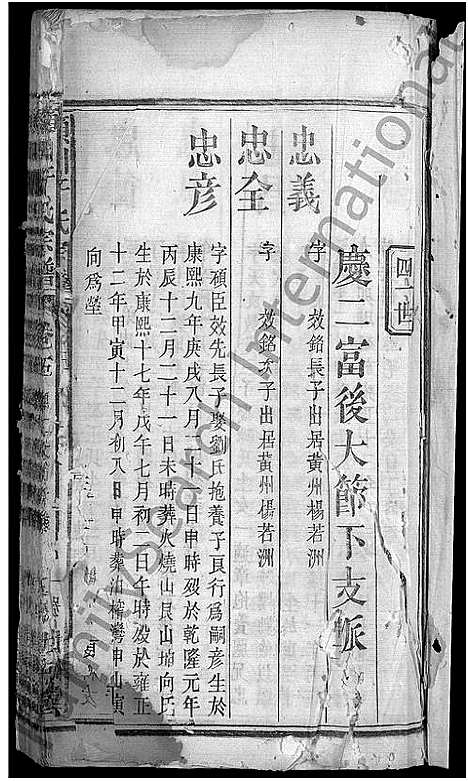 四世
慶二富後大節下支脈
忠義
字 效銘長子出居黃州楊若洲
忠全
字 效銘次子出居黃州楊若洲
忠彥
字碩臣效先長子娶劉氏抱養子良行爲嗣彥生於
康熙九年庚戌八月二十一日申時殁於乾隆元年
丙辰十二月二十一日未時葬火燒山艮山坤向
生於康熙十七年戊午七月初二日午時殁於雍正
十二年甲寅十二月初八日申時葬泊 灣申山寅
向爲塋
氏宗譜
FamilySearch International